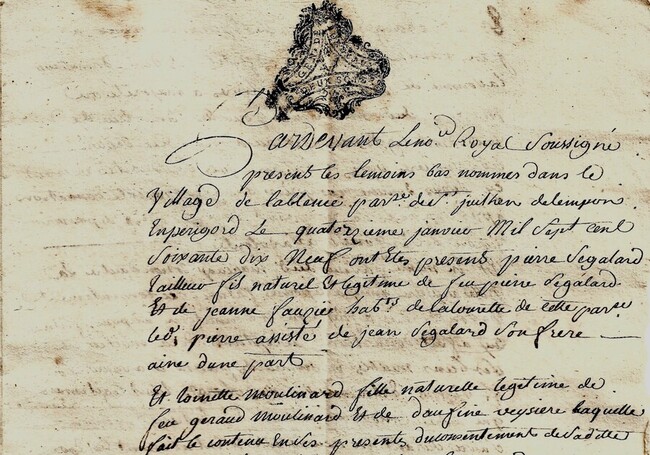 DEUX SOLS
Pardevant Le no.re Royal Soussigné
present les temoins bas nommés dans le
Village de parse de st julhien de
En perigord Le quatorzieme janvier Mil Sept Cent
Soixante dix Neuf ont Etes present pierre Segalard
tailleur fil naturel et legitime de feu pierre Segalard
Et de jeanne habts de de cette parse
led. pierre assisté de jean Segalard Son frere
ainé dune part
Et toinette Moulinard fille naturelle legitime de
feu geraud Moulinard Et de daufine veysiere Laquelle
fait le contenu En ses presents du consentement de sa ditte